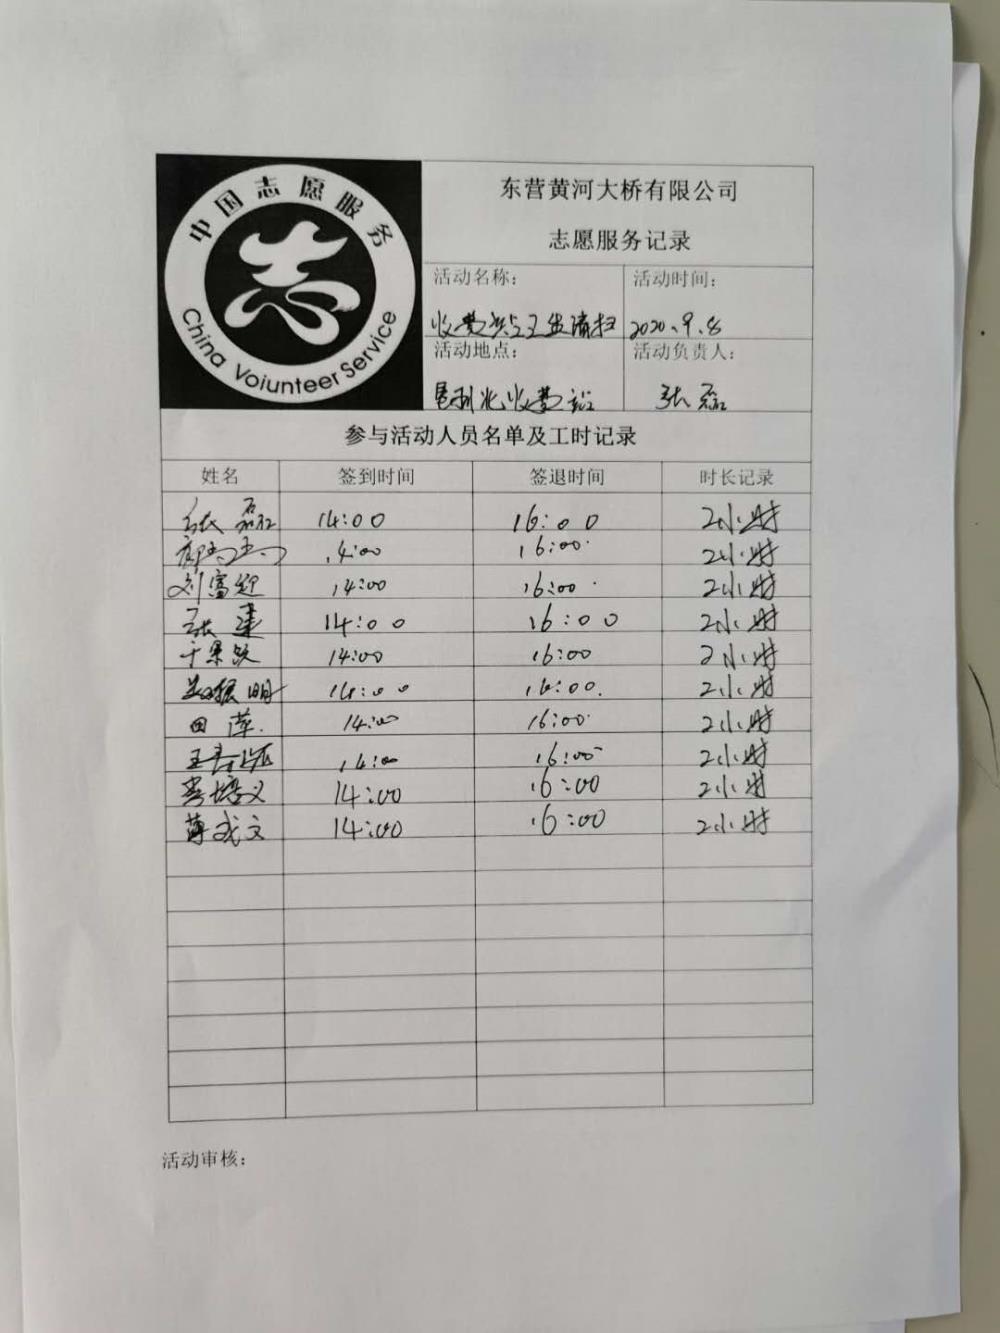 中国志愿服务
志
China Voiunteer Service
东营黄河大桥有限公司
志愿服务记录
活动名称: 活动时间:
收费站卫生清扫 2020.9.8
活动地点: 活动负责人:
垦利北收费站 张磊
参与活动人员名单及工时记录
姓名 签到时间 签退时间 时长记录
张磊 14:00 16:00 2小时
14:00 16:00 2小时
刘富超 14:00 16:00 2小时
张建 14:00 16:00 2小时
14:00 16:00 2小时
振明 14:00 16:00 2小时
田萍 14:00 16:00 2小时
王 14:00 16:00 2小时
培义 14:00 16:00 2小时
薄成文 14:00 16:00 2小时
活动审核: